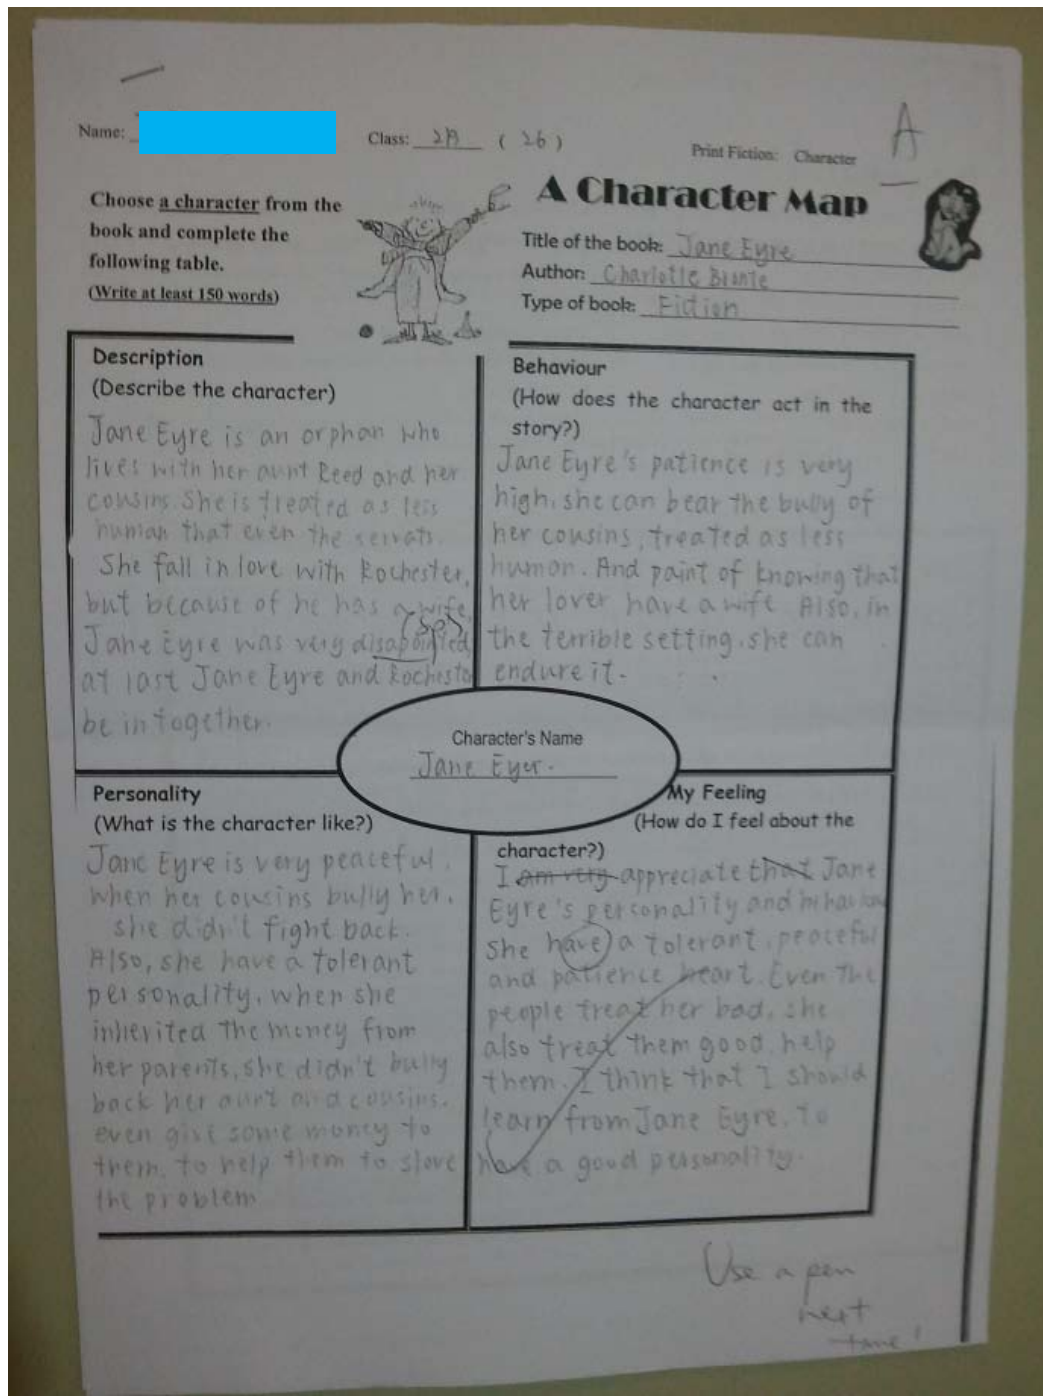 Name:
Class: 2B ( 26 )
Print Fiction: Character
A
Choose a character from the
book and complete the
following table.
(Write at least 150 words)
A Character Map
Title of the book: Jane Eyre
Author: Charlotte Bronte
Type of book: Fiction
Description
(Describe the character)
Jane Eyre is an orphan who
lives with her aunt Reed and her
cousins. She is treated as less
human that even the servats.
She fall in love with Rochester,
but because of he has a wife,
Jane Eyre was very disapointed,
at last Jane Eyre and Rochester
be in together.
Behaviour
(How does the character act in the
story?)
Jane Eyre's patience is very
high, she can bear the bully of
her cousins, treated as less
human. And paint of knowing that
her lover have a wife. Also, in
the terrible setting, she can
endure it.
Character's Name
Jane Eyer.
Personality
(What is the character like?)
Jane Eyre is very peaceful.
when her cousins bully her,
she didn't fight back.
Also, she have a tolerant
personality, when she
inherited the money from
her parents, she didn't bully
back her aunt and cousins.
even give some money to
them, to help them to slove
the problem
My Feeling
(How do I feel about the
character?)
I am very appreciate that Jane
Eyre's personality and
she have a tolerant, peaceful
and patience heart. Even the
people treat her bad, she
also treat them good, help
them. I think that I should
learn from Jane Eyre, to
have a good personality.
Use a pen
next
time!